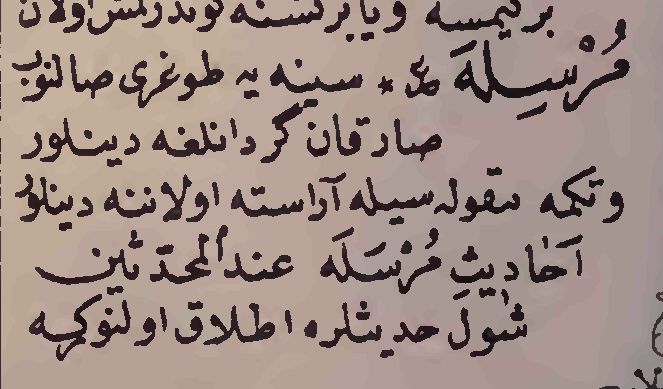 بر كیمسه ویا بر نسنه كوندرلمش اولان
مُرْسِلَه سینه یه طوغری صالنوب
صارقان كردانلغه دینلور
وتكمه مقوله سیله آراسته اولاننه دینلور
اَحَادیثِ مُرْسَلَه عند المحدّثین
شول حدیثلره اطلاق اولنوركه